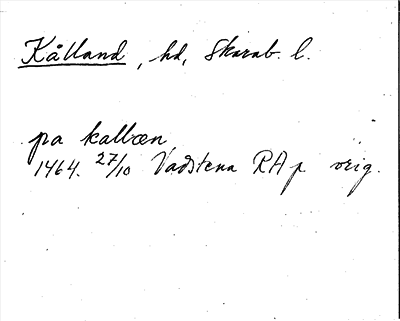 Kålland, hd, Skarab. l.
pa kalben
1464. 27/10 Vadstena RAp orig.